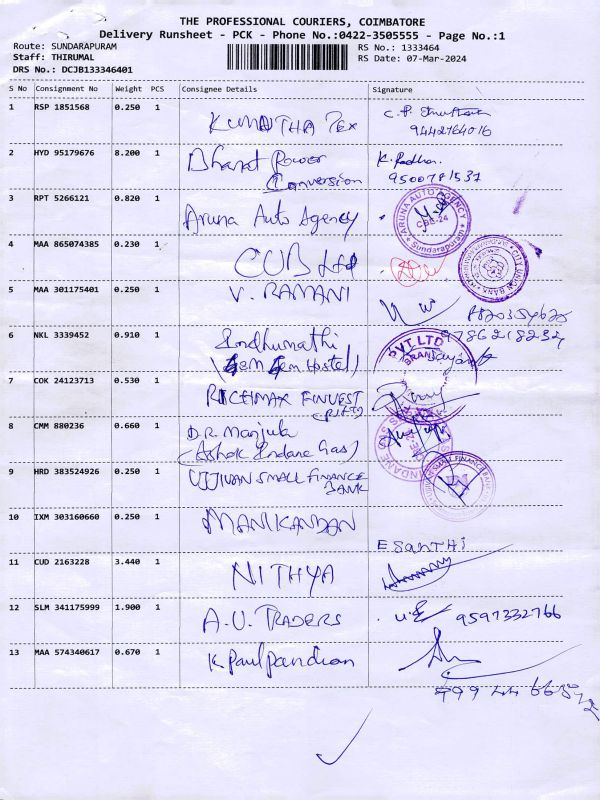 THE PROFESSIONAL COURIERS, COIMBATORE
Delivery Runsheet - PCK - Phone No.:0422-3505555 - Page No.:1
Route: SUNDARAPURAM
RS No.: 1333464
Staff: THIRUMAL
RS Date: 07-Mar-2024
DRS No.: DCJB133346401
S No Consignment No Weight PCS Consignee Details Signature
1 RSP 1851568 0.250 1 KUMUTHA TEX
9442764016
2 HYD 95179676 8.200 1 Bharat Power K. Radha
Conversion 9500781537
3 RPT 5266121 0.820 1 Aruna Auto Agency
ARUNA AUTO AGENCY
CBE-24
Sundarapuram
4 MAA 865074385 0.230 1 CUB Ltd
CITY UNION BANK
5 MAA 301175401 0.250 1 V. RAMANI
9786218234
6 NKL 3339452 0.910 1 Indhumathi
(Gem Gem Hostel)
PVT LTD
7 COK 24123713 0.530 1 RICHMAX FINVEST
8 CMM 880236 0.660 1 D.R. Manjula
(Ashok Indane Gas)
INDANE
9 HRD 383524926 0.250 1 UJJIVAN SMALL FINANCE
BANK
SMALL FINANCE BANK
10 IXM 303160660 0.250 1 MANIKANDAN
E SANTHI
11 CUD 2163228 3.440 1 NITHYA
12 SLM 341175999 1.900 1 A.U. TRADERS 9597332766
13 MAA 574340617 0.670 1 K Paulpandian